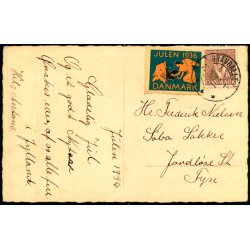 Julen 1936
Glædelig Jul
Og et godt Nytaar
ønskes eder af os alle fra
i Jylland
JULEN 1936
DANMARK
DANMARK
Hr. Frederik Nielsen
Jordløse St
Fyn